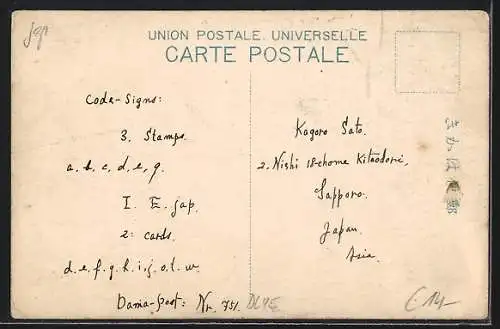 Jap
UNION POSTALE UNIVERSELLE
CARTE POSTALE
Code-Signs:
3. Stamps.
a. b. c, d, e, g.
I. E. Jap.
2: cards.
d. e. f. g. h. i. j. o. l. w.
Dania-post: Nr. 751.
Kogoro Sato.
2. Nishi 18-chome Kitaodori,
Sapporo.
Japan.
Asia.